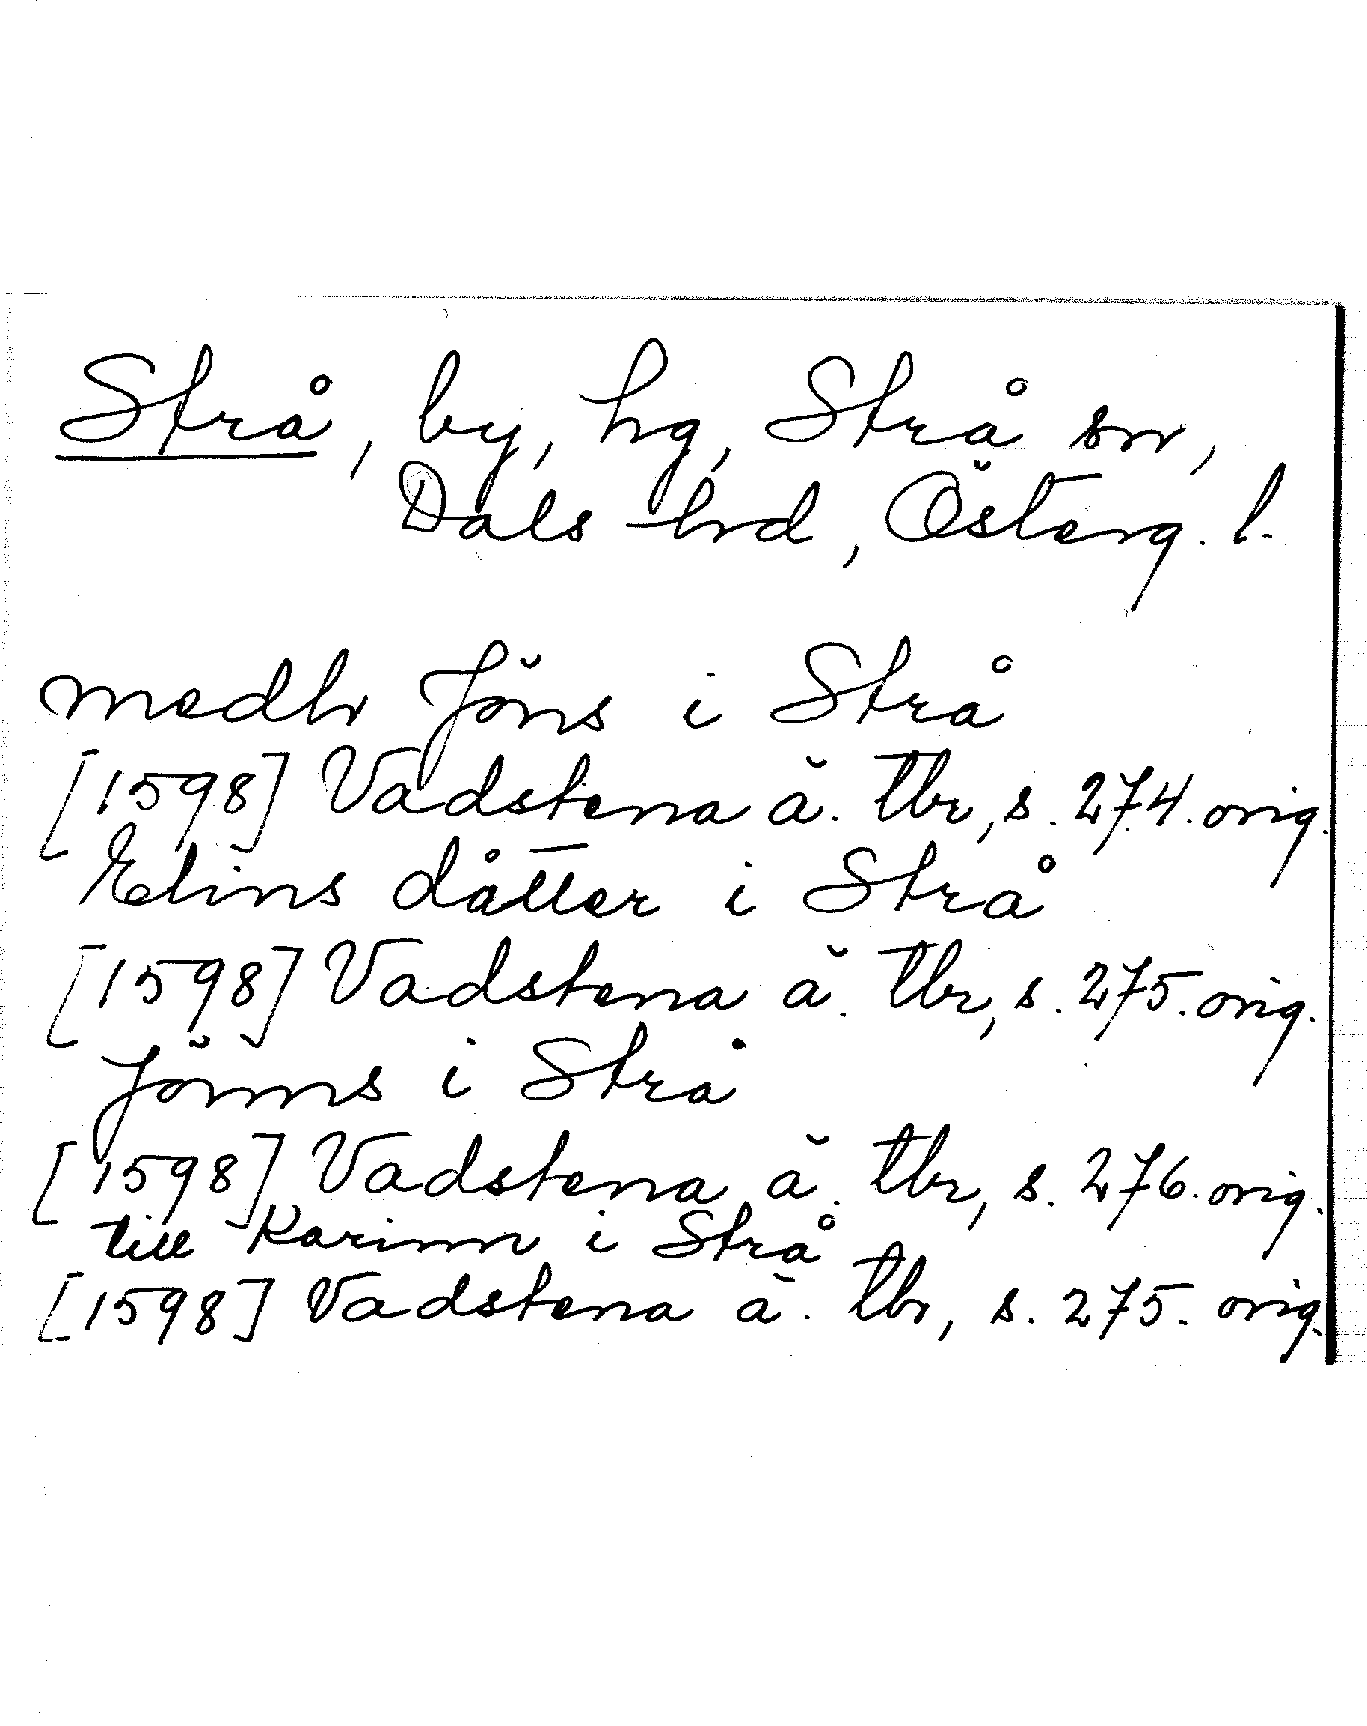 Strå, by, hg, Strå sn,
Dals hd, Österg. l.
medh Jöns i Strå
[1598] Vadstena ä. tbr, s. 274. orig.
Elins dåtter i Strå
[1598] Vadstena ä. tbr, s. 275. orig.
Jönns i Strå
[1598] Vadstena ä. tbr, s. 276. orig.
till Karinn i Strå
[1598] Vadstena ä. tbr, s. 275. orig.